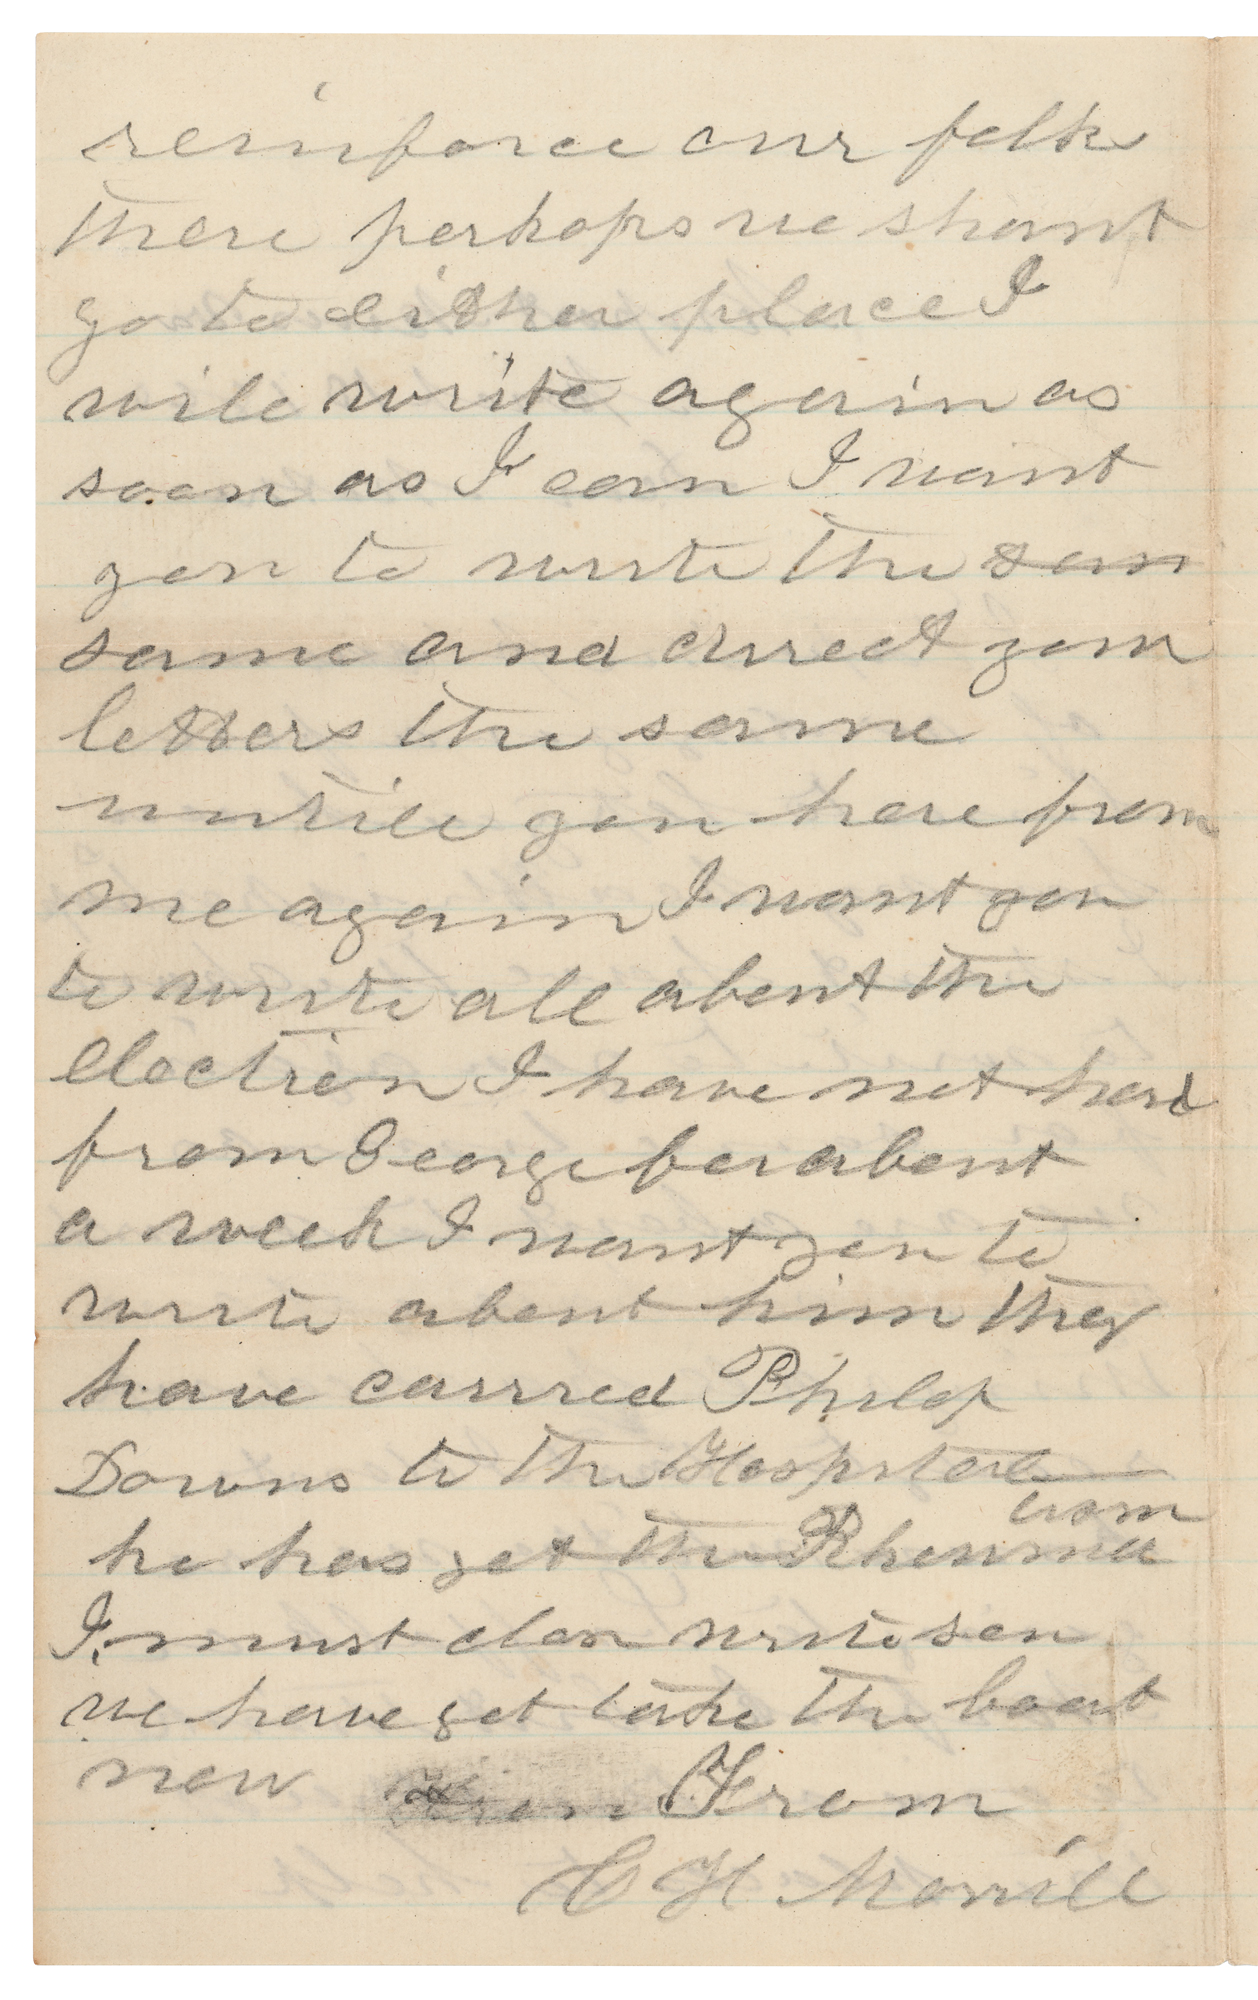 reinforce our folks
there perhaps we shant
go to either place I
will write again as
soon as I can I want
you to write the sam
same and direct your
letters the same
untill you here from
me again I want you
to write all about the
election I have not herd
from George for about
a week I want you to
write about him they
have carried Philip
Downs to the Hospital
he has got the Rheumatism
I must clos write soon
we have got take the boat
now From From
C H Morrill